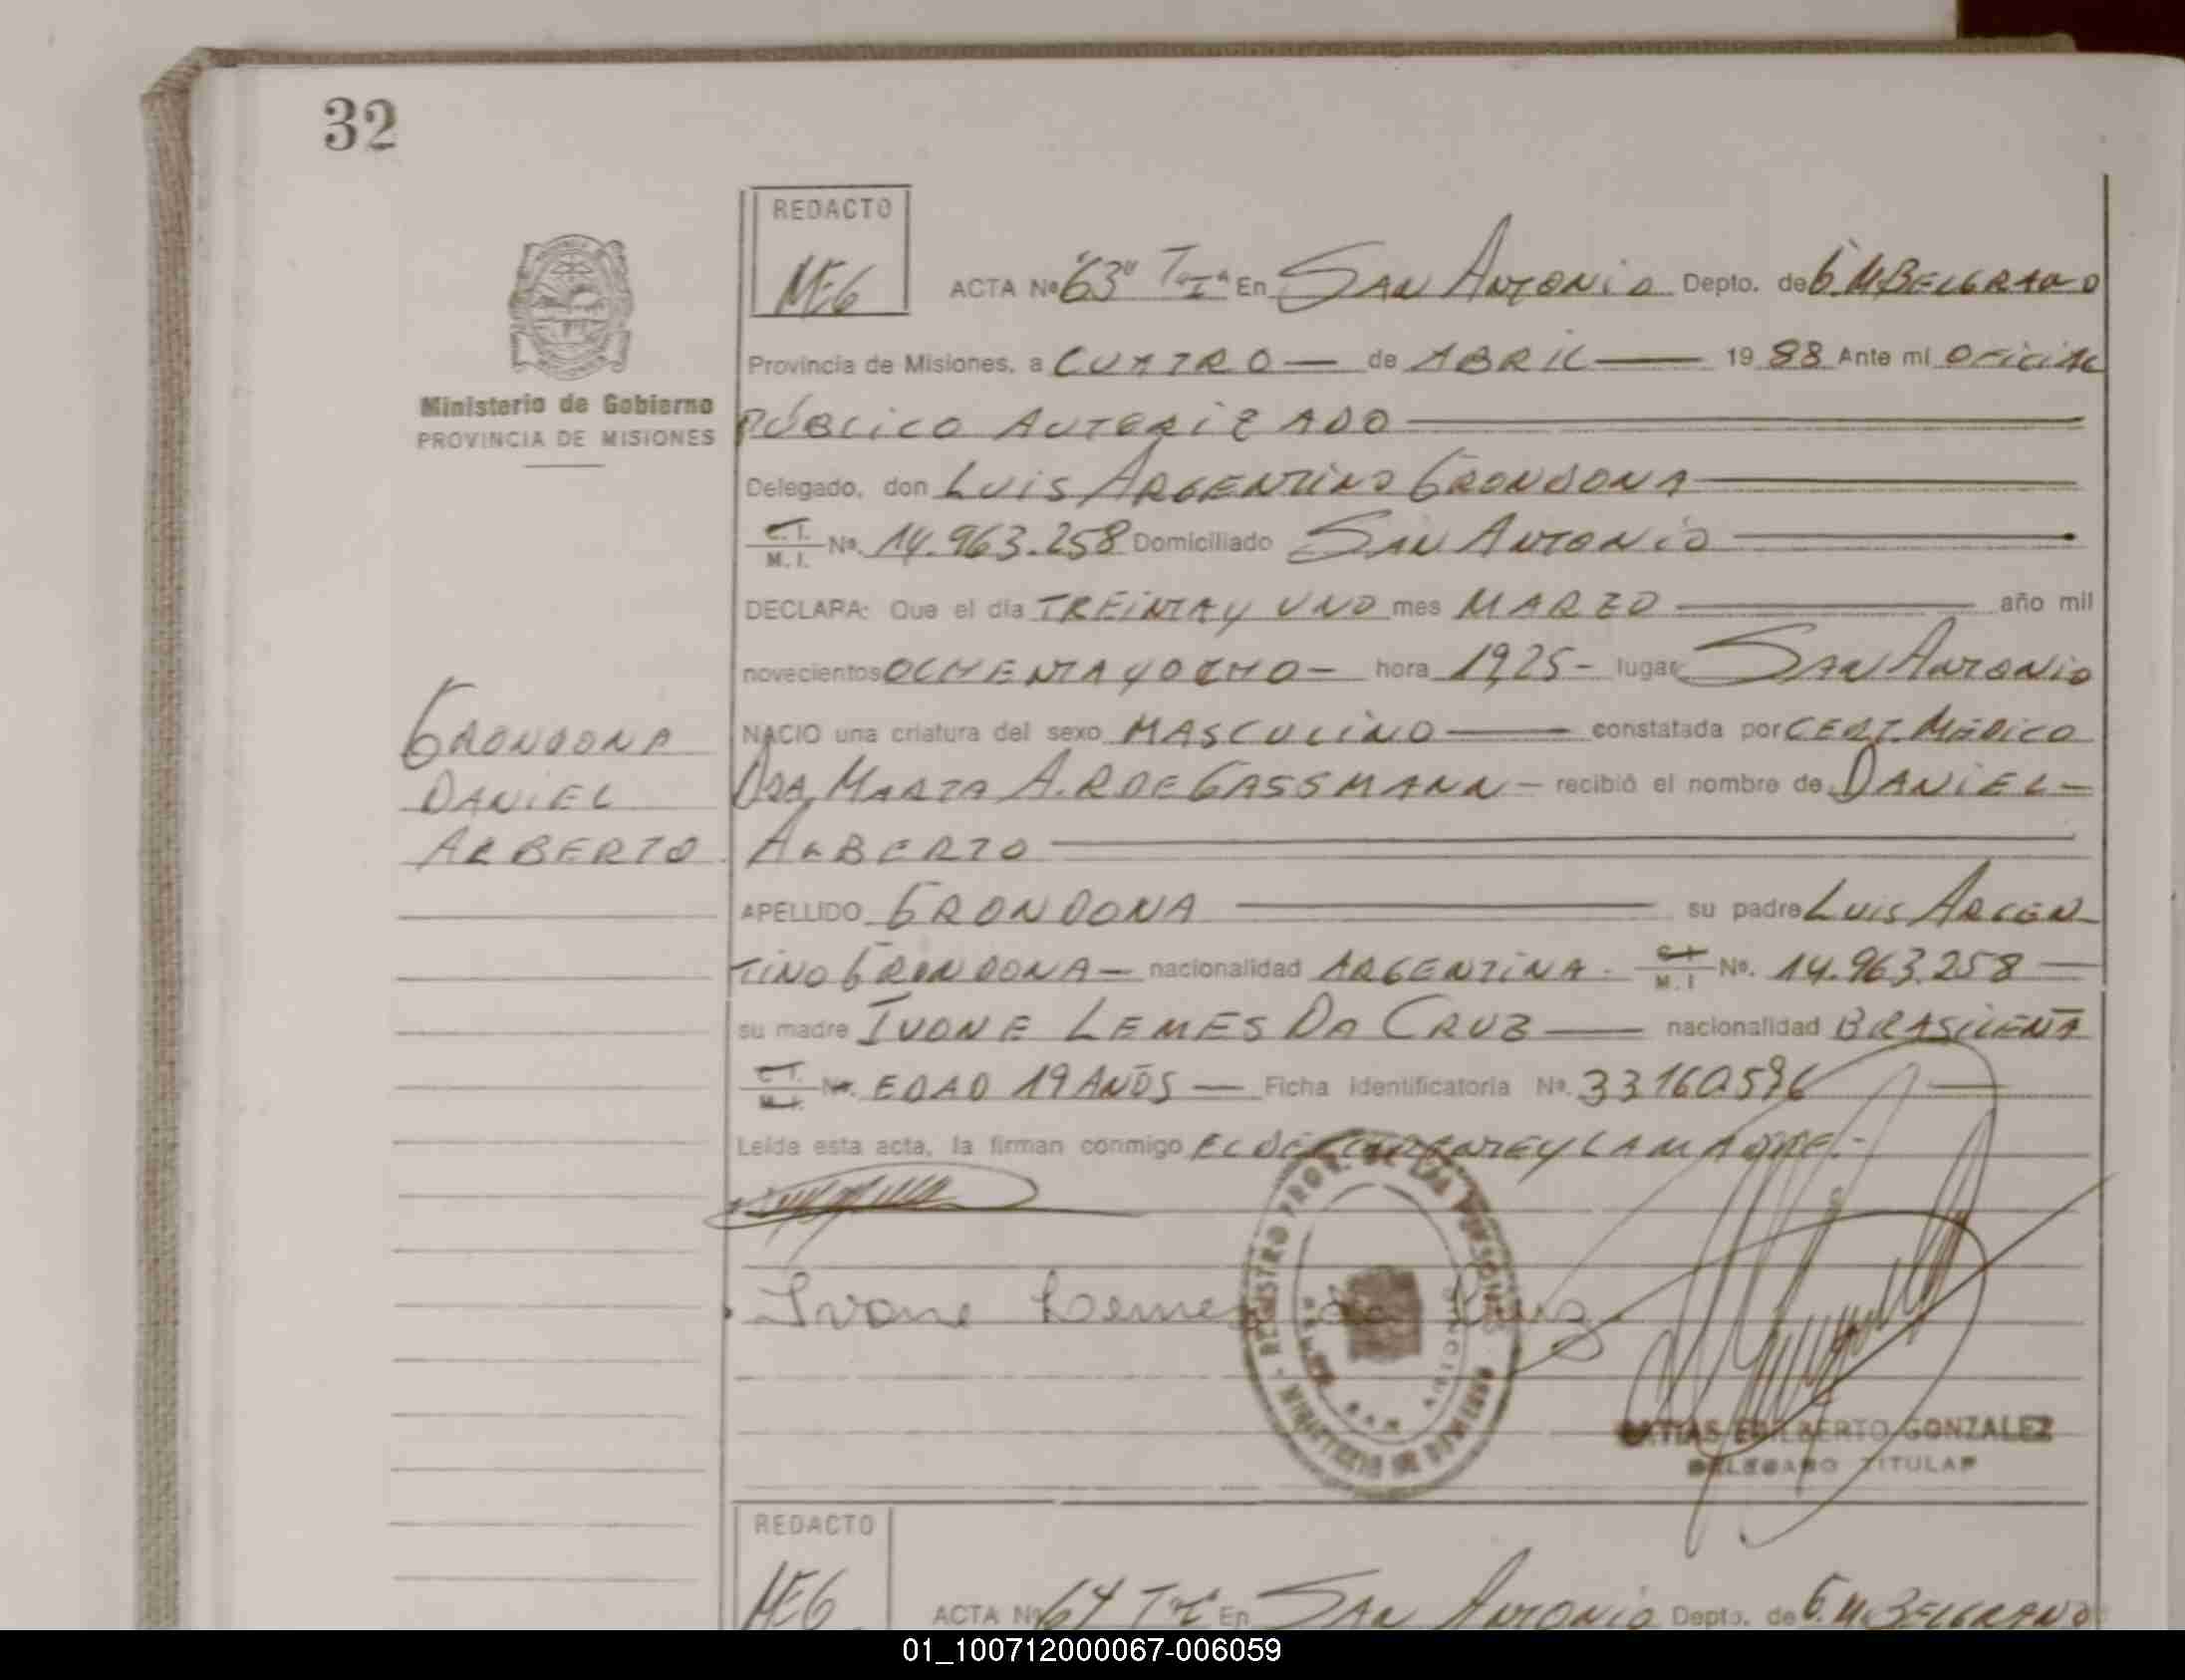 32
REDACTO
MEG
ACTA Nº "63" Tº Iº En SAN ANTONIO Depto. de G.M.BELGRANO
Ministerio de Gobierno
PROVINCIA DE MISIONES
Provincia de Misiones, a CUATRO — de ABRIL — 1988 Ante mí OFICIAL
PÚBLICO AUTORIZADO —
Delegado, don LUIS ARGENTINO GRONDONA —
C.I. M.I. Nº. 14.963.258 Domiciliado SAN ANTONIO —
DECLARA: Que el día TREINTA Y UNO mes MARZO — año mil
novecientos OCHENTA Y OCHO — hora 19,25 - lugar SAN ANTONIO
NACIO una criatura del sexo MASCULINO — constatada por CERT. MÉDICO
DRA. MARTA A. R DE GASSMANN — recibió el nombre de DANIEL —
ALBERTO —
GRONDONA
DANIEL
ALBERTO
APELLIDO GRONDONA — su padre LUIS ARGEN-
TINO GRONDONA — nacionalidad ARGENTINA. C.I. M.I Nº. 14.963.258 —
su madre IVONE LEMES DA CRUZ — nacionalidad BRASILEÑA
C.I. M.I. Nº. EDAD 19 AÑOS — Ficha identificatoria Nº. 33160596 —
Leída esta acta, la firman conmigo EL DECLARANTE Y LA MADRE.-
Ivone Lemes da Cruz
REGISTRO PROV. DE LAS PERSONAS
MINISTERIO DE GOBIERNO
MATIAS EDILBERTO GONZALEZ
DELEGADO TITULAR
REDACTO
MEG
ACTA Nº 64 Tº Iº En SAN ANTONIO Depto. de G.M.BELGRANO
01_100712000067-006059